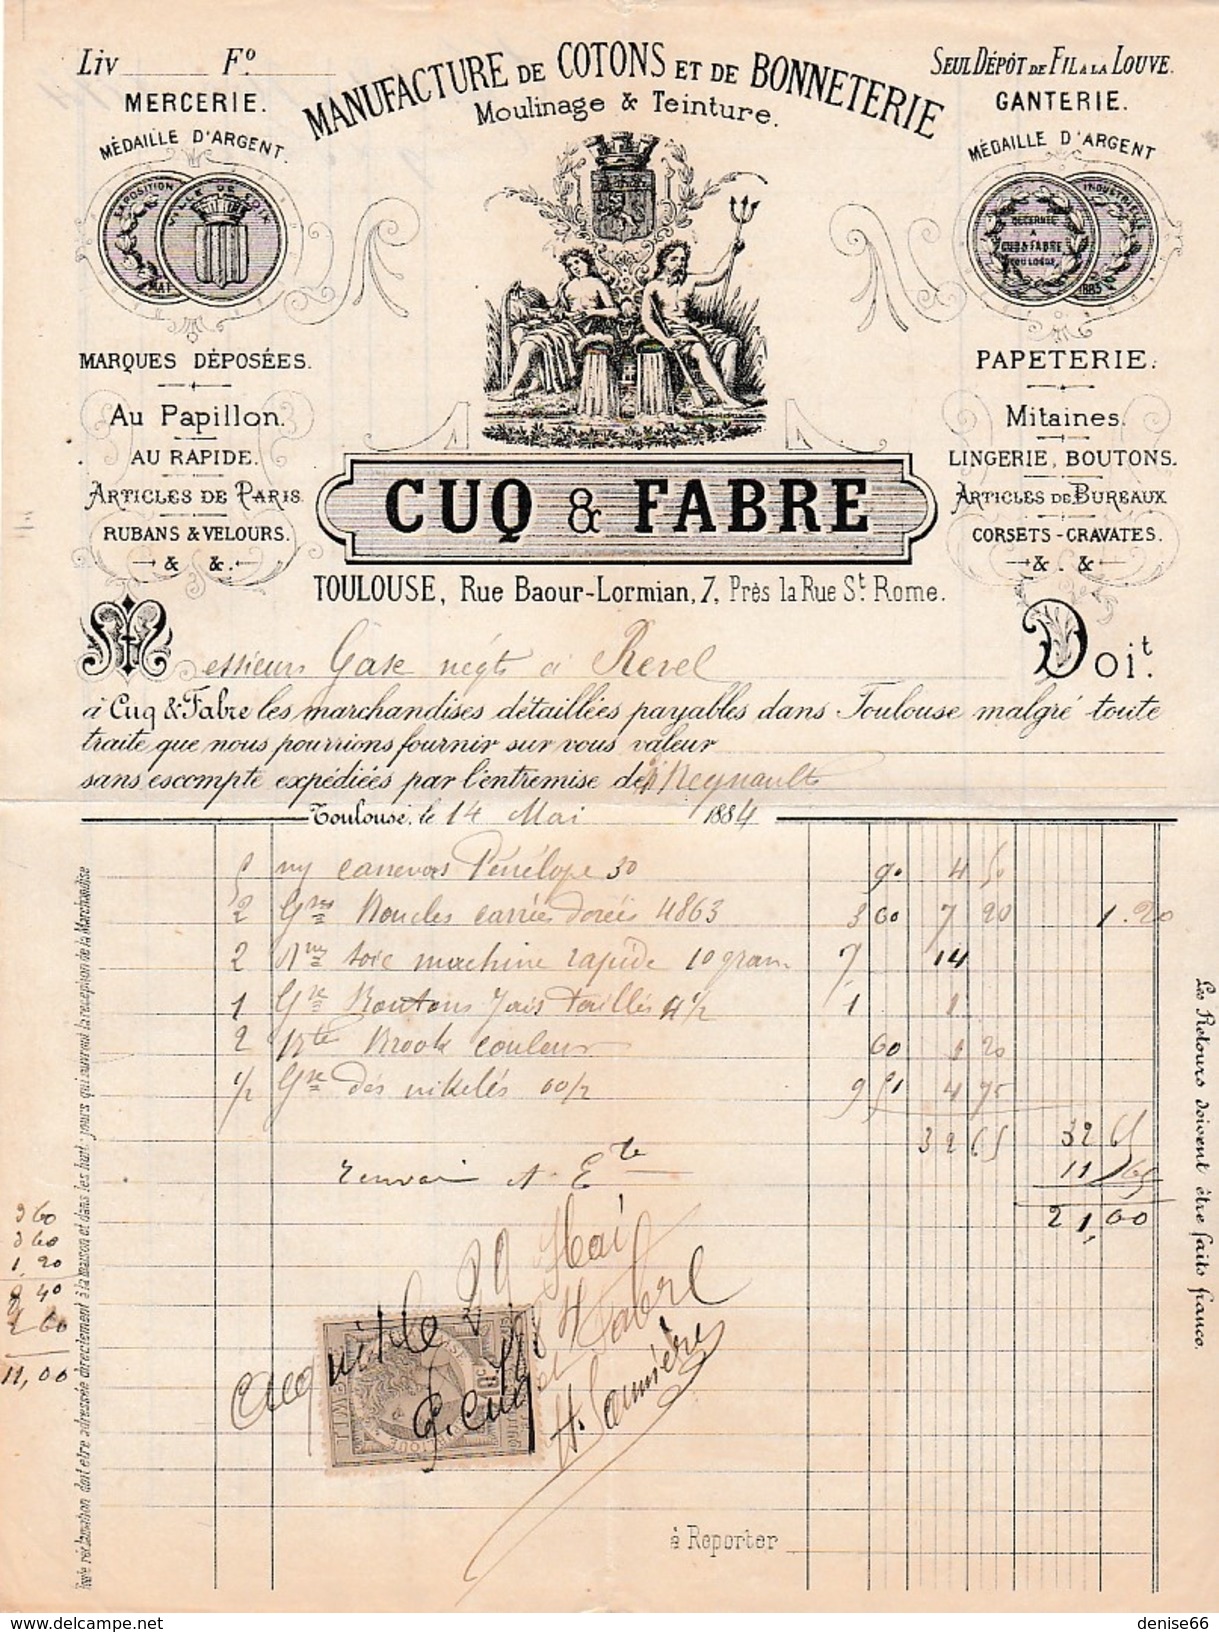 Liv F.º
MERCERIE.
MÉDAILLE D'ARGENT.
EXPOSITION
VILLE DE FOIX
MAI
MARQUES DÉPOSÉES.
Au Papillon.
AU RAPIDE.
ARTICLES DE PARIS.
RUBANS & VELOURS.
& &.
MANUFACTURE DE COTONS ET DE BONNETERIE
Moulinage & Teinture.
CUQ & FABRE
TOULOUSE, Rue Baour-Lormian, 7, Près la Rue St. Rome.
SEUL DÉPÔT DE FIL A LA LOUVE.
GANTERIE.
MÉDAILLE D'ARGENT
DÉCERNÉE
A
CUQ & FABRE
TOULOUSE
INDUSTRIELLE
1883
PAPETERIE.
Mitaines.
LINGERIE, BOUTONS.
ARTICLES DE BUREAUX
CORSETS-CRAVATES.
&. &
Messieurs Gase négts à Revel Doit.
à Cuq & Fabre les marchandises détaillées payables dans Toulouse malgré toute
traite que nous pourrions fournir sur vous valeur
sans escompte expédiées par l'entremise de Reynault
Toulouse, le 14 Mai 1884
5 canevas Pénélope 30 90 4 50
2 Gses Boucles carrées dorées 4863 3 60 7 20 1.20
2 soie machine rapide 10 gram 7 14
1 Gse Boutons Jais taillés 4 1/2 1 1
2 Bte Brook couleur 60 1 20
1/2 Gse dés nikelés 00/2 9 51 4 75
32 65 32 65
11,65
21,00
3 60
3 60
1,20
8 40
2 60
11,00
29 Mai
G. Cuq et Fabre
H. Saunière
TIMBRE
10
à Reporter
Toute réclamation doit etre adressée directement à la maison et dans les huit jours qui suivront la reception de la Marchandise
Les Retours doivent être faits franco.
denise66